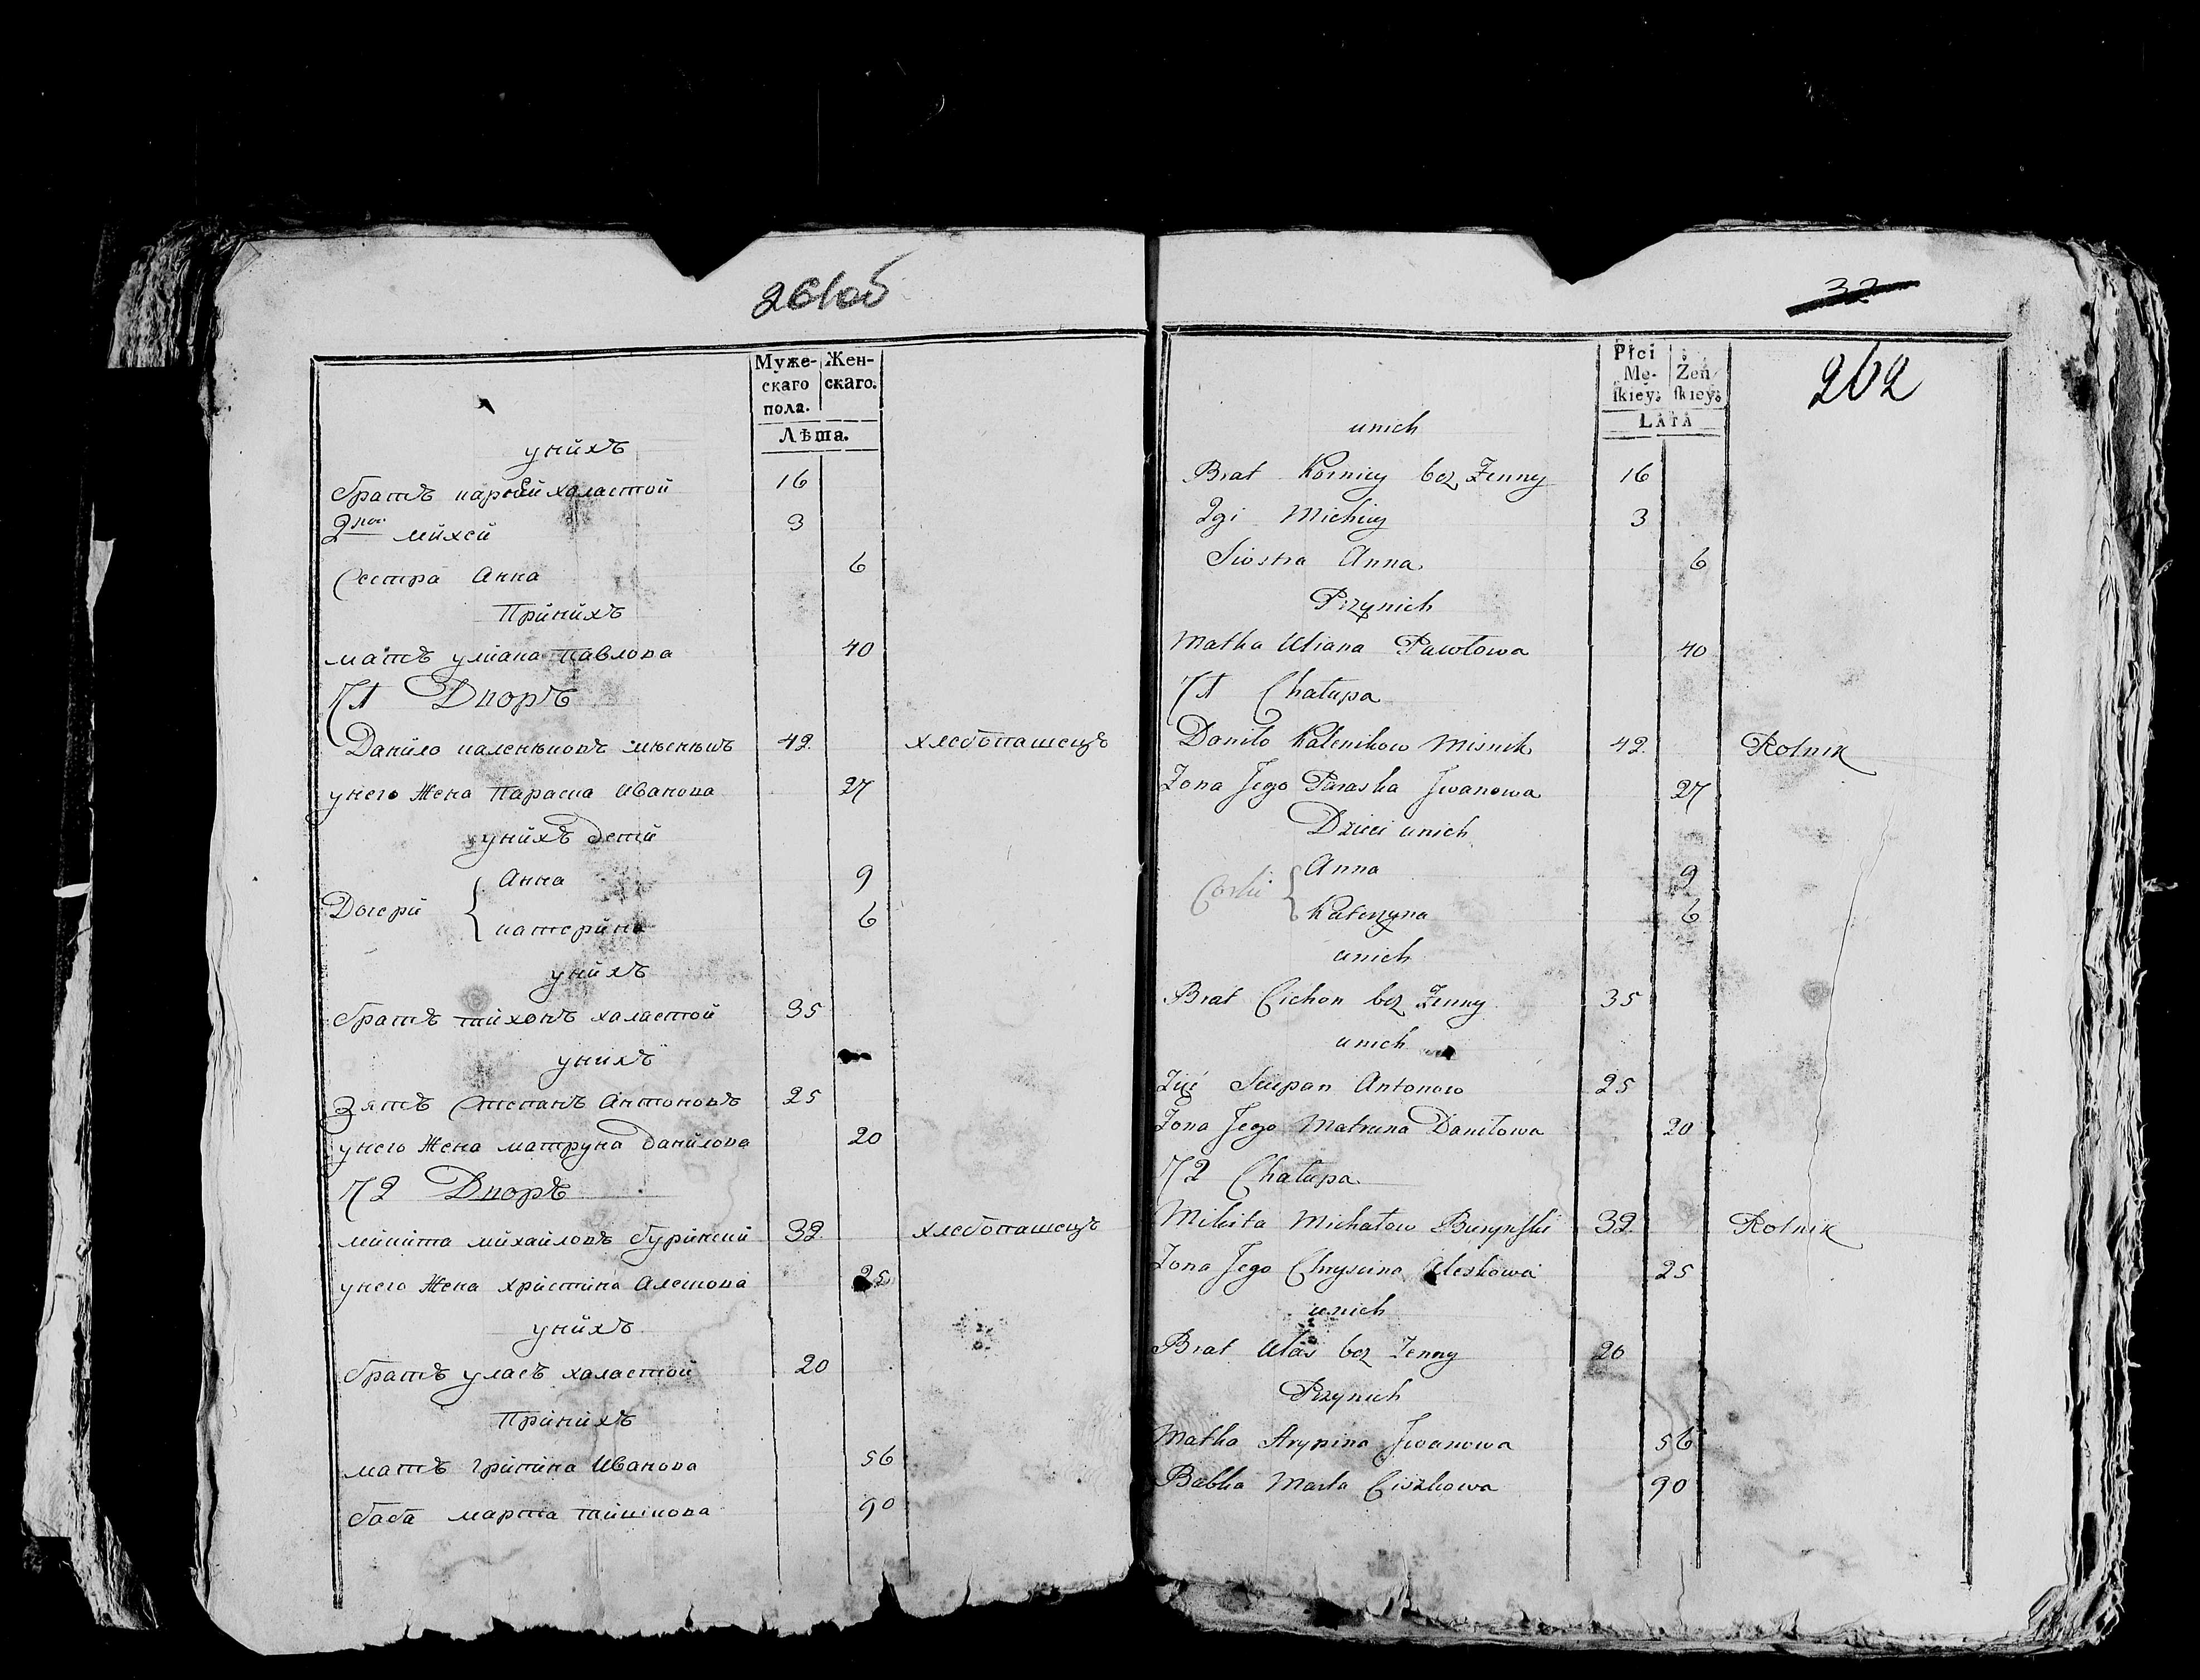 261об
Муже- Жен-
скаго скаго.
пола.
Лѣта.
унйхъ
братъ карнѣй халастой 16
2гой мйхей 3
Сестра Анна 6
Прйнйхъ
матъ улиана Павлова 40
71 Дворъ
Данйло каленковъ 42 хлебопашецъ
унего Жена Параска Иванова 27
унйхъ детй
Анна 9
Дочерй {
катерйна 6
унйхъ
братъ тйхонъ халастой 35
унйхъ
Зятъ Степанъ Антоновъ 25
унего Жена матруна Данйлова 20
72 Дворъ
мйкйта мйхайловъ бурйнскйй 32 хлебопашецъ
унего Жена христина Алешкова 25
унйхъ
братъ уласъ халастой 20
Прйнйхъ
матъ грйпина Иванова 56
баба марта тйшкова 90
32
262
Płci
Mę- Żeń
skiey: skiey:
LATA
unich
Brat Korniey bez Zenny 16
2gi Michiey 3
Siostra Anna 6
Przynich
Matka Uliana Pawłowa 40
71 Chałupa
Daniło Kalenikow Misnik 42 Rolnik
Zona Jego Paraska Jwanowa 27
Dzieci unich
Anna 9
Corki {
Katerzyna 6
unich
Brat Cichon bez Zenny 35
unich
Zięć Sciepan Antonow 25
Zona Jego Matruna Daniłowa 20
72 Chałupa
Mikita Michałow Burynski 32 Rolnik
Zona Jego Chryscina Aleskowa 25
unich
Brat Ułas bez Zenny 20
Przynich
Matka Arypina Jwanowa 56
Babka Marta Ciszkowa 90